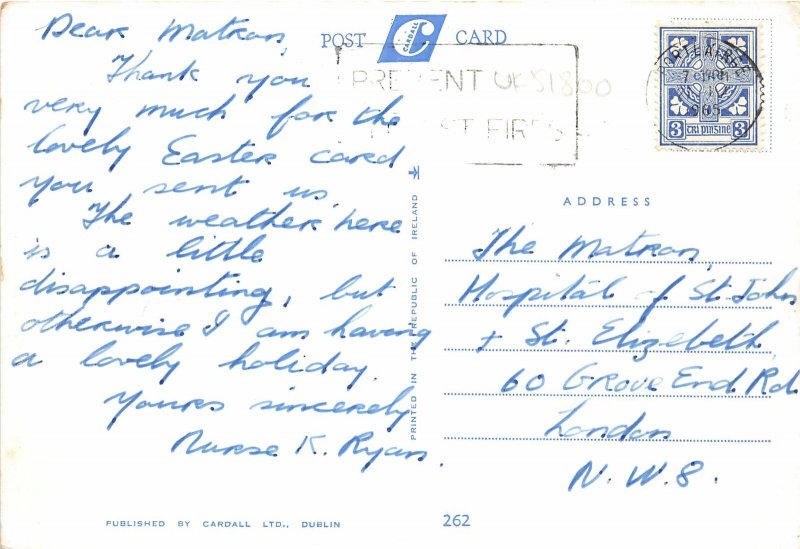 Dear Matron,
Thank you
very much for the
lovely Easter card
you sent us.
The weather here
is a little
disappointing, but
otherwise I am having
a lovely holiday.
Yours sincerely
Nurse K. Ryan.
POST CARDALL CARD
PREVENT
ST FIRES
UK51800
965
3 TRÍ PINGINE 3
PRINTED IN THE REPUBLIC OF IRELAND
ADDRESS
The Matron,
Hospital of St Johns
+ St. Elizabeth
60 Grove End Rd
London
N.W.8.
PUBLISHED BY CARDALL LTD., DUBLIN
262